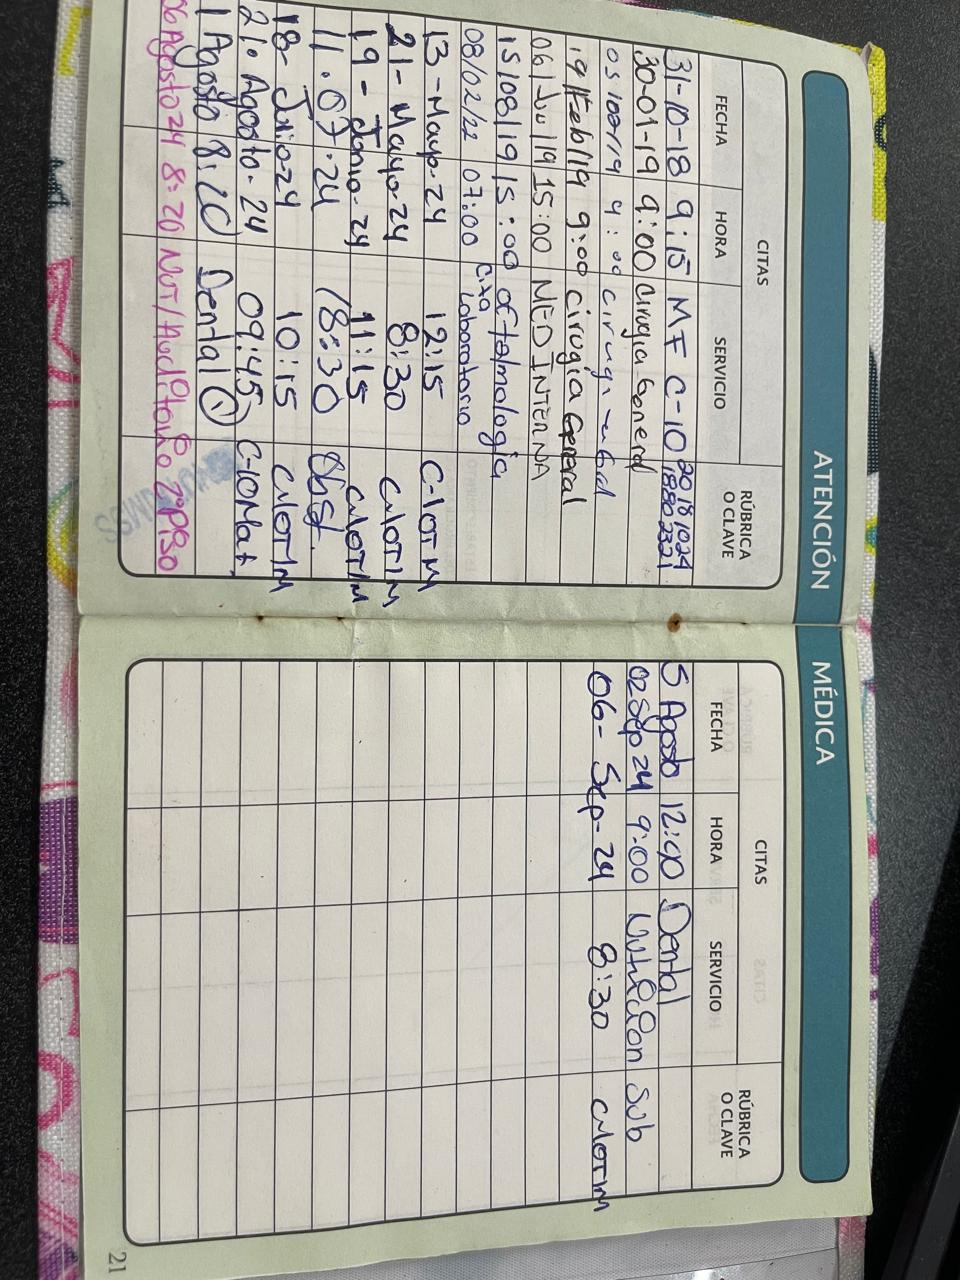 ATENCIÓN
CITAS
FECHA HORA SERVICIO RÚBRICA O CLAVE
31-10-18 9:15 MF C-10 20181024
18802321
30-01-19 9:00 cirugia General
9:00
19/Feb/19 9:00 cirugia General
06/Ju/19 15:00 MED INTERNA
15/08/19 15:00 oftalmologia
08/02/22 07:00 cita Laboratorio
13-Mayo-24 12:15 C-10TM
21-Mayo-24 8:30
19-Junio-24 11:15
11.07.24 18:30
18-Julio-24 10:15
21. Agosto-24 09:45 C-10Mat.
1 Agosto 8:20 Dental
06 Agosto 24 8:20 2º Piso
MÉDICA
CITAS
FECHA HORA SERVICIO RÚBRICA O CLAVE
5 Agosto 12:40 Dental
02 Sep 24 9:00 Nutricion Sub
06-Sep-24 8:30
21